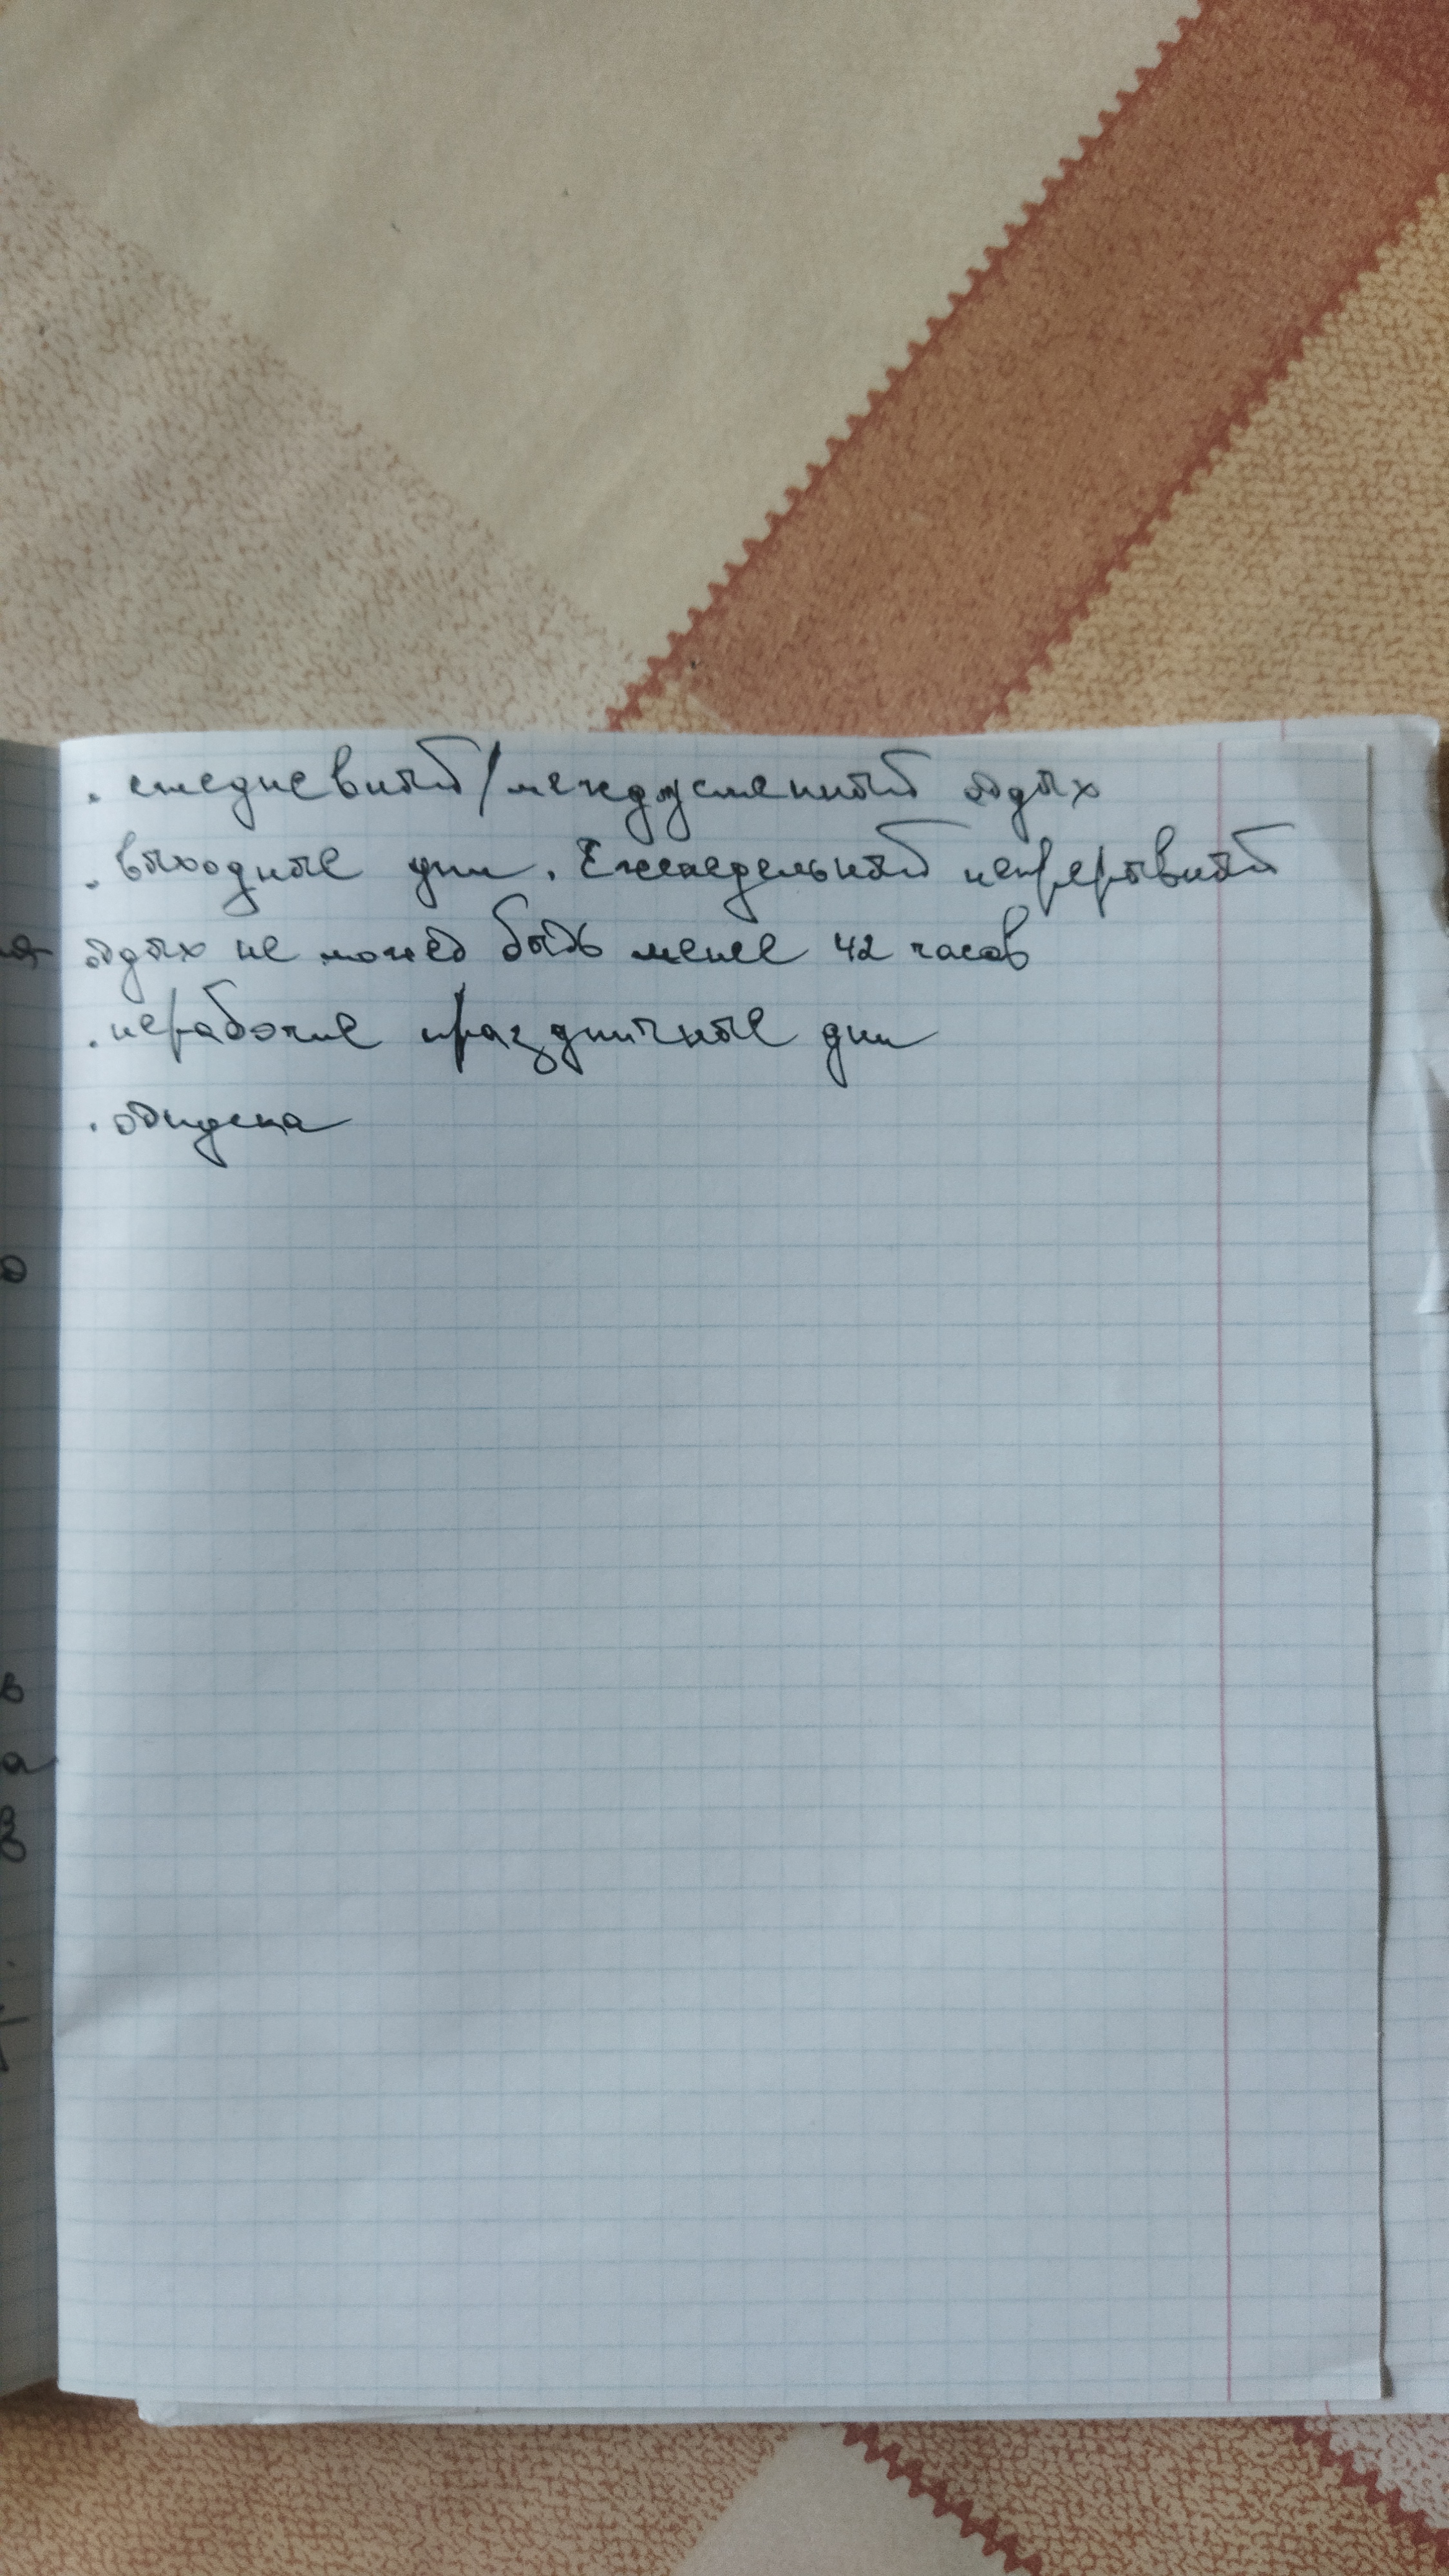 . ежедневный/междусменный отдых
. выходные дни. Еженедельный непрерывный
отдых не может быть менее 42 часов
. нерабочие праздничные дни
. отпуска